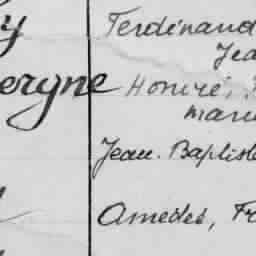 y Ferdinand
Jea
ergne Honoré,
mari
Jean-Baptiste
Amédée, Fr